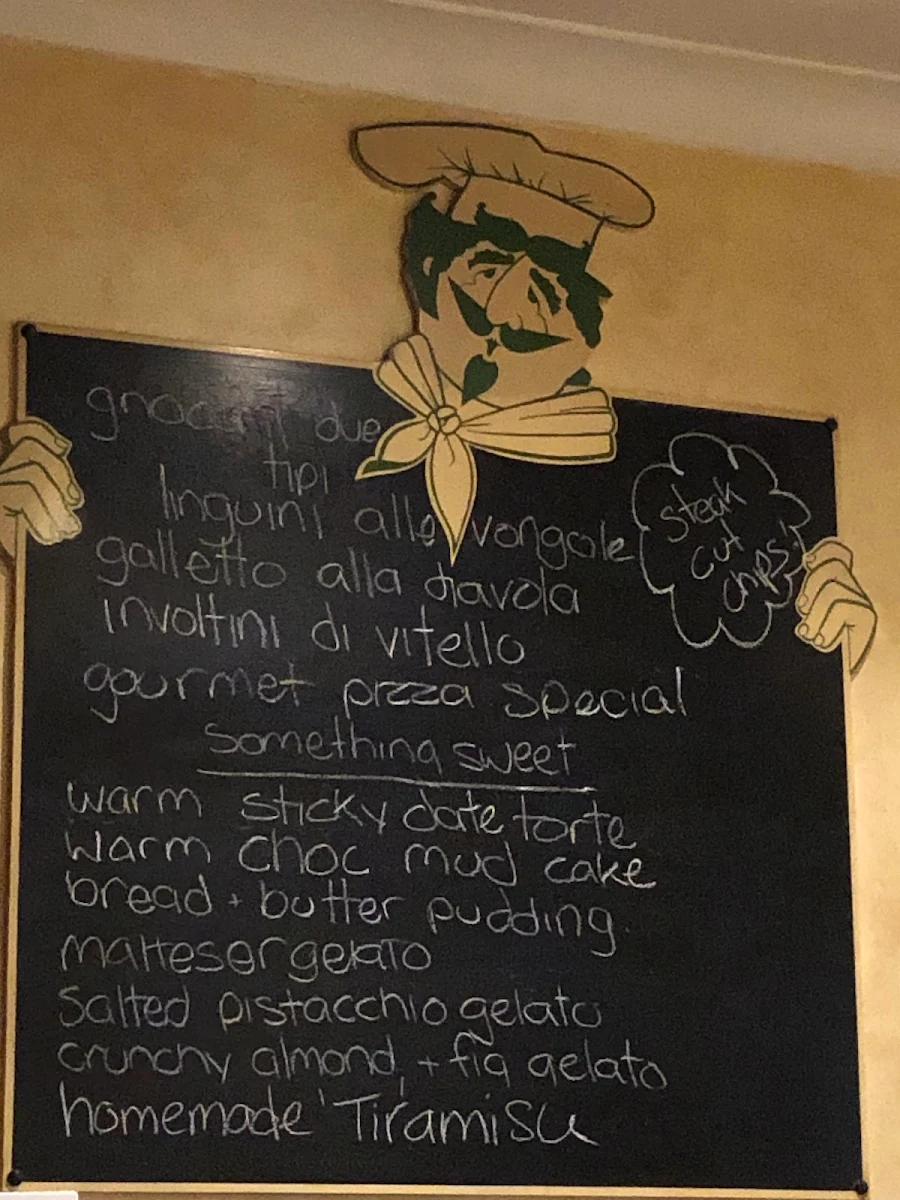 gnocchi due
tipi
linguini alle vongole
galletto alla diavola
involtini di vitello
gourmet pizza special
steak
cut
chips!
something sweet
warm sticky date torte
warm choc mud cake
bread + butter pudding.
malteser gelato
Salted pistacchio gelato
crunchy almond + fig gelato
homemade 'Tiramisu